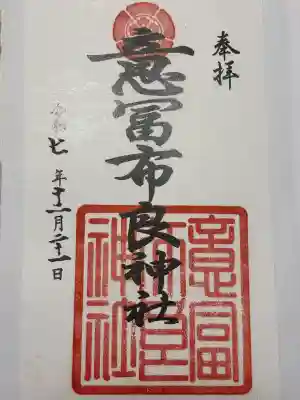 奉拝
意冨布良神社
令和七年十二月二十一日
意冨
布良
神社